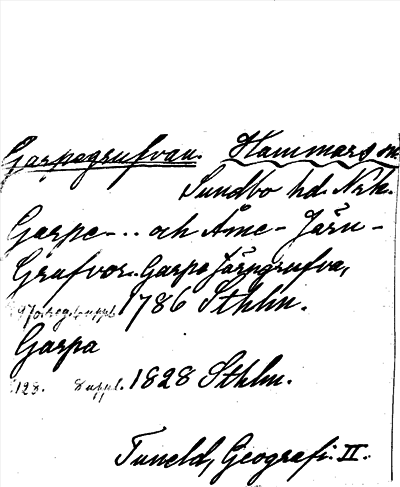 Garpegrufvan. Hammars sn.
Sundbo hd. Nrk.
Garpe- .. och Åme- Järn-
Grufvor. Garpa Järngrufva,
1786 Sthlm.
Garpa
:128. suppl. 1828 Sthlm.
Tuneld, Geografi. II.